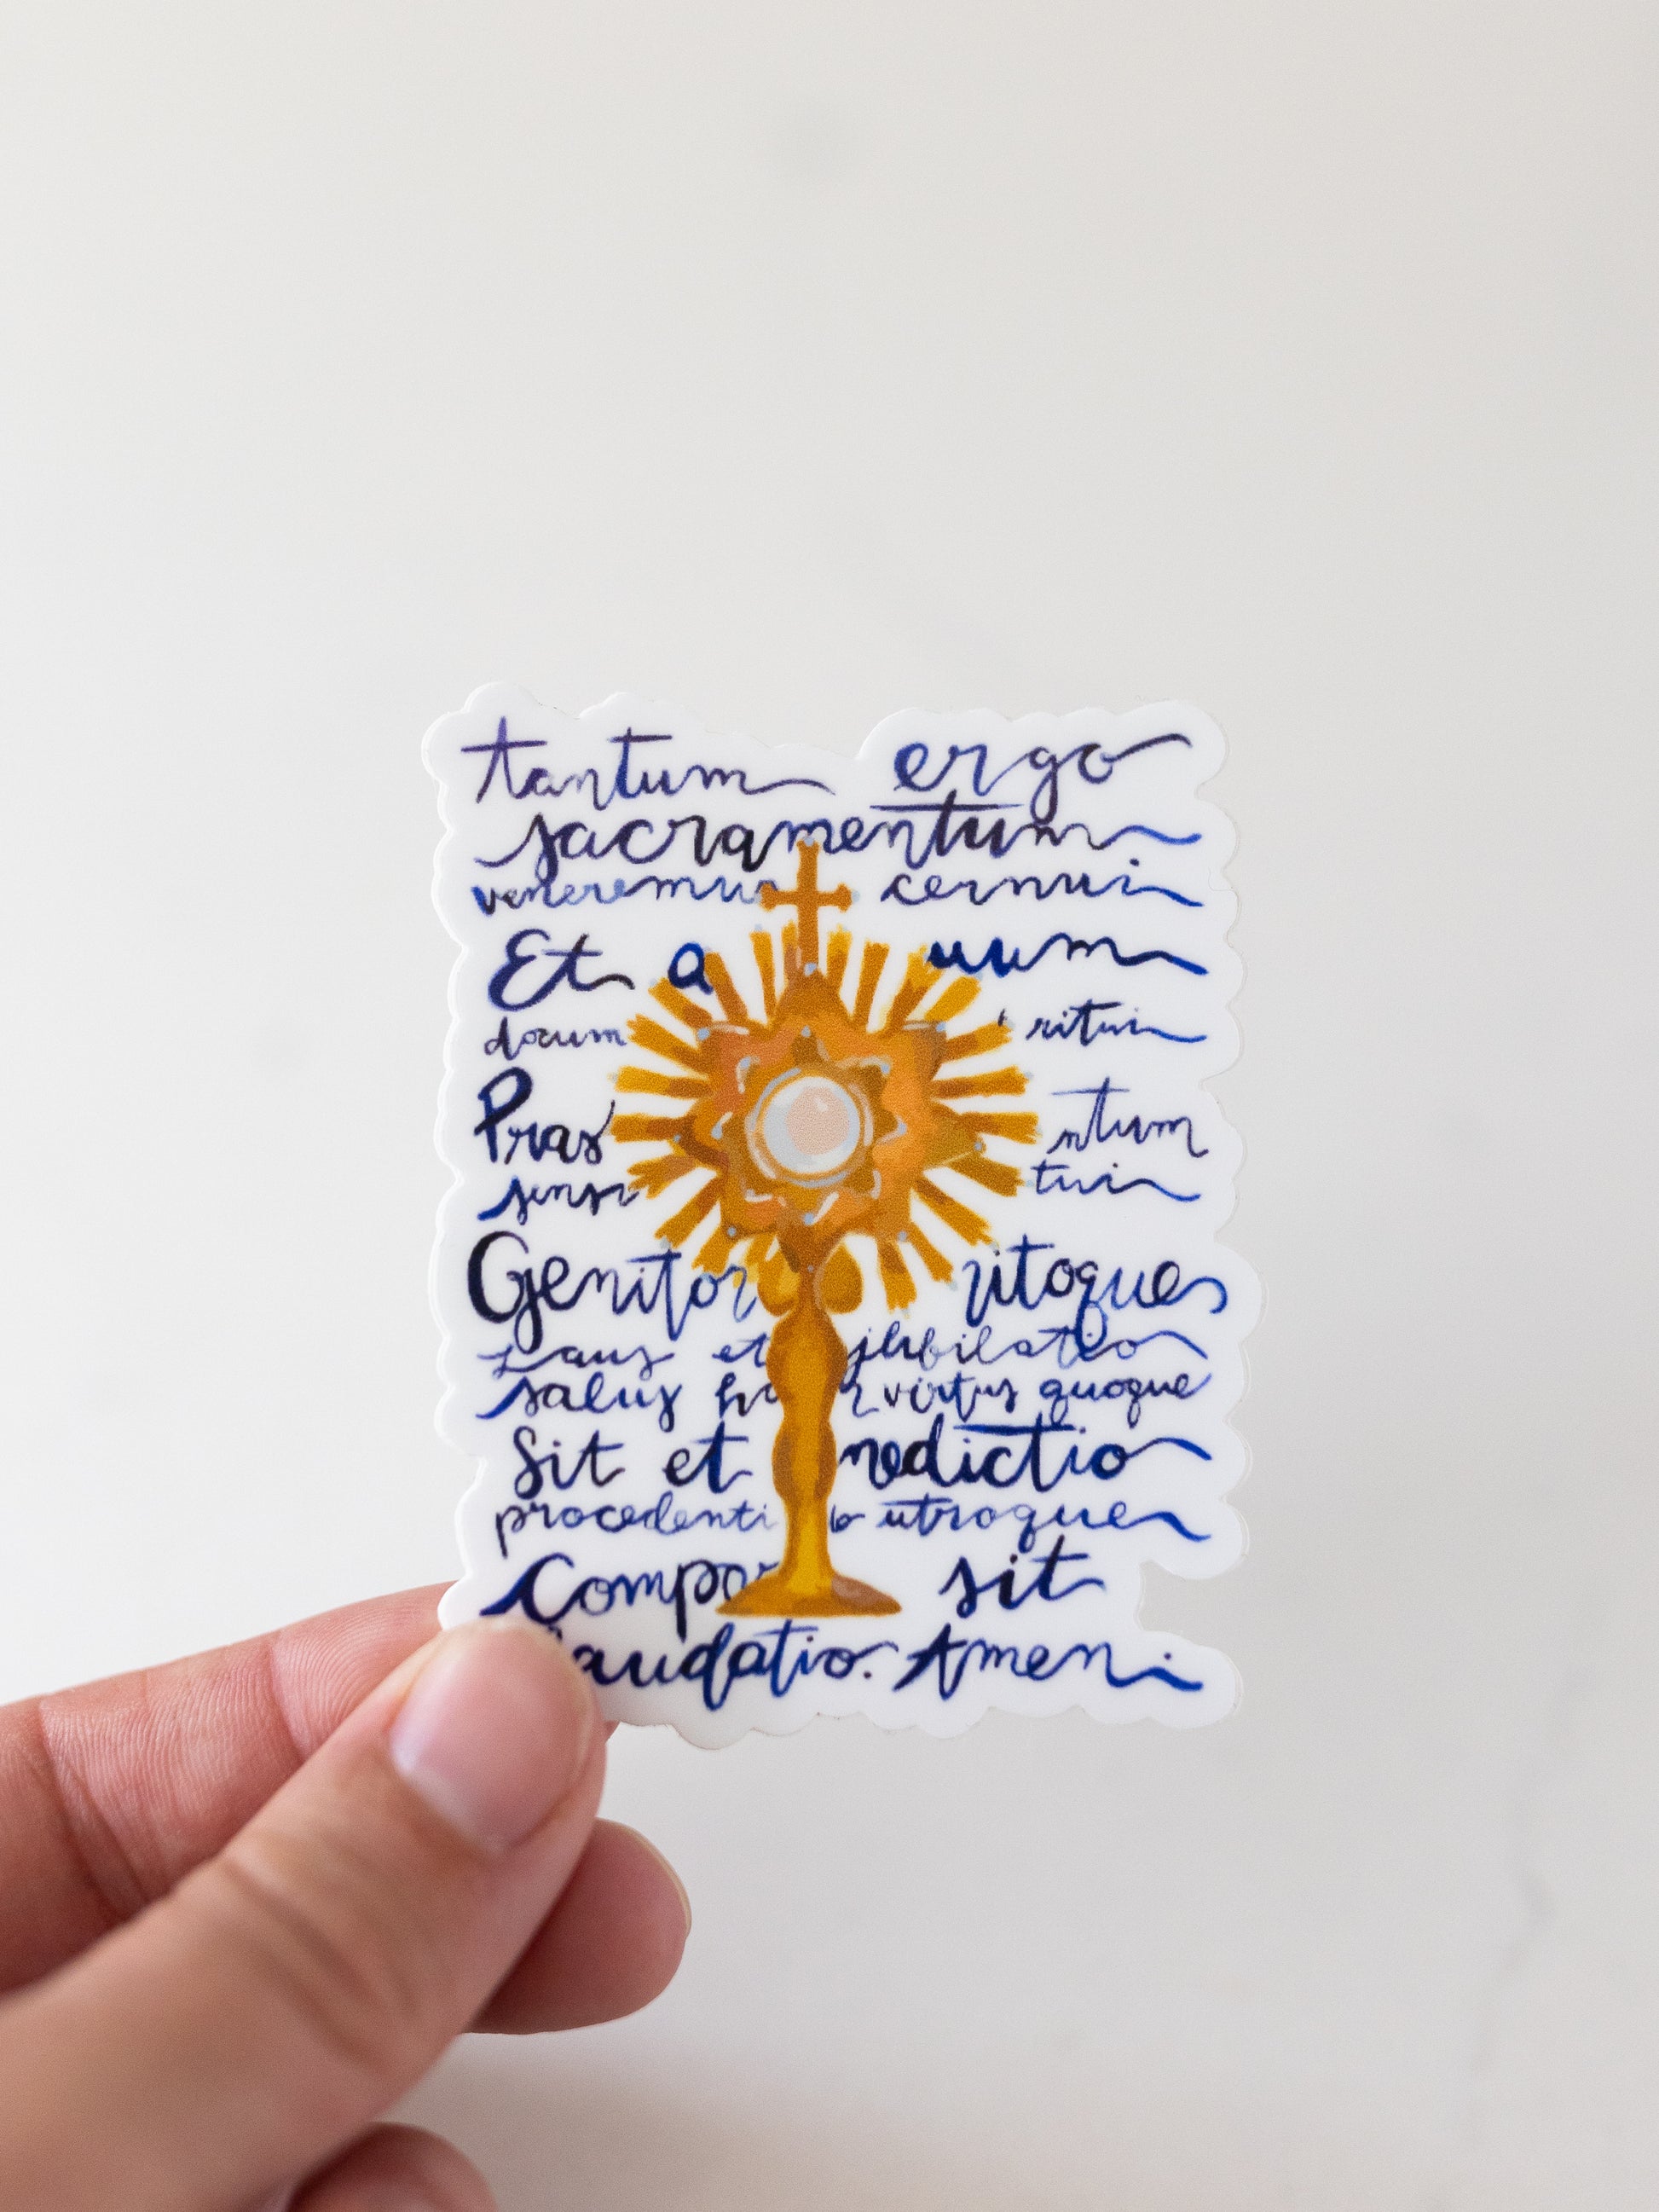 tantum ergo
sacramentum
veneremur cernui
Et a uum
docum ritui
Praes ntum
sensu tui
Genitor nitoque
Laus et jubilatio
salus ho r virtus quoque
Sit et nedictio
procedenti b utroque
Compar sit
laudatio. Amen.